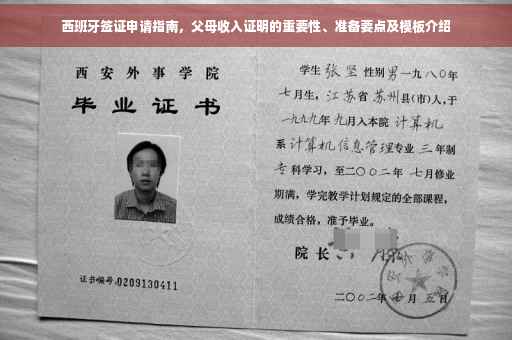 西班牙签证申请指南，父母收入证明的重要性、准备要点及模板介绍
西安外事学院
毕业证书
证书编号:0209130411
学生 张坚 性别 男 一九八〇年
七月生，江苏省 苏州县(市)人，于
一九九九年 九月入本院 计算机
系 计算机信息管理专业 三 年制
专科学习，至二〇〇二年 七月修业
期满，学完教学计划规定的全部课程，
成绩合格，准予毕业。
院长
二〇〇二年 月 五日